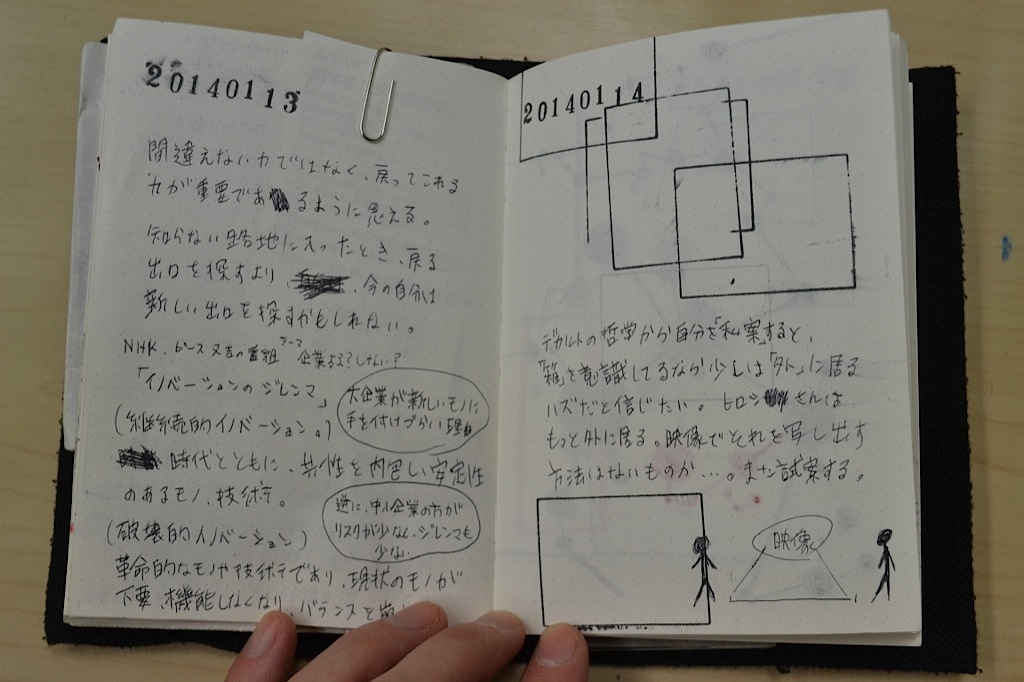 20140113
間違えない力ではなく、戻ってこれる
力が重要であるように思える。
知らない路地に入ったとき、戻る
出口を探すより 、今の自分は
新しい出口を探すかもしれない。
NHK、ピース又吉の番組 テーマ 企業する?しない?
「イノベーションのジレンマ」
大企業が新しいモノに
手を付けづらい理由
(継続的イノベーション。)
時代とともに、 性を内包し安定性
のあるモノ、技術。
逆に、中小企業の方が
リスクが少なく、ジレンマも
少ない
(破壊的イノベーション)
革命的なモノや技術であり、現状のモノが
不要、機能しなくなり、バランスを
20140114
デカルトの哲学から自分を「私案」すると、
「箱」を意識してるなら少しは「外」に居る
ハズだと信じたい。ヒロシさんは
もっと外に居る。映像でそれを写し出す
方法はないものか…。また試案する。
映像